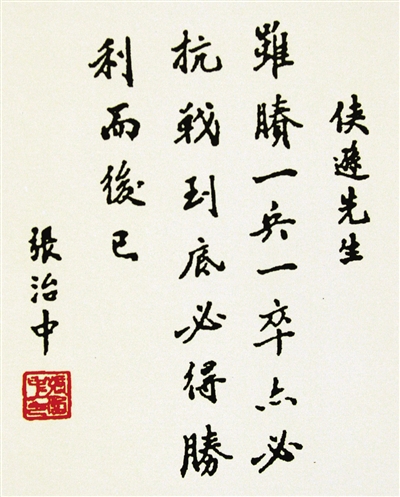 侠遊先生
雖賸一兵一卒亦必
抗戰到底必得勝
利而後已
張治中